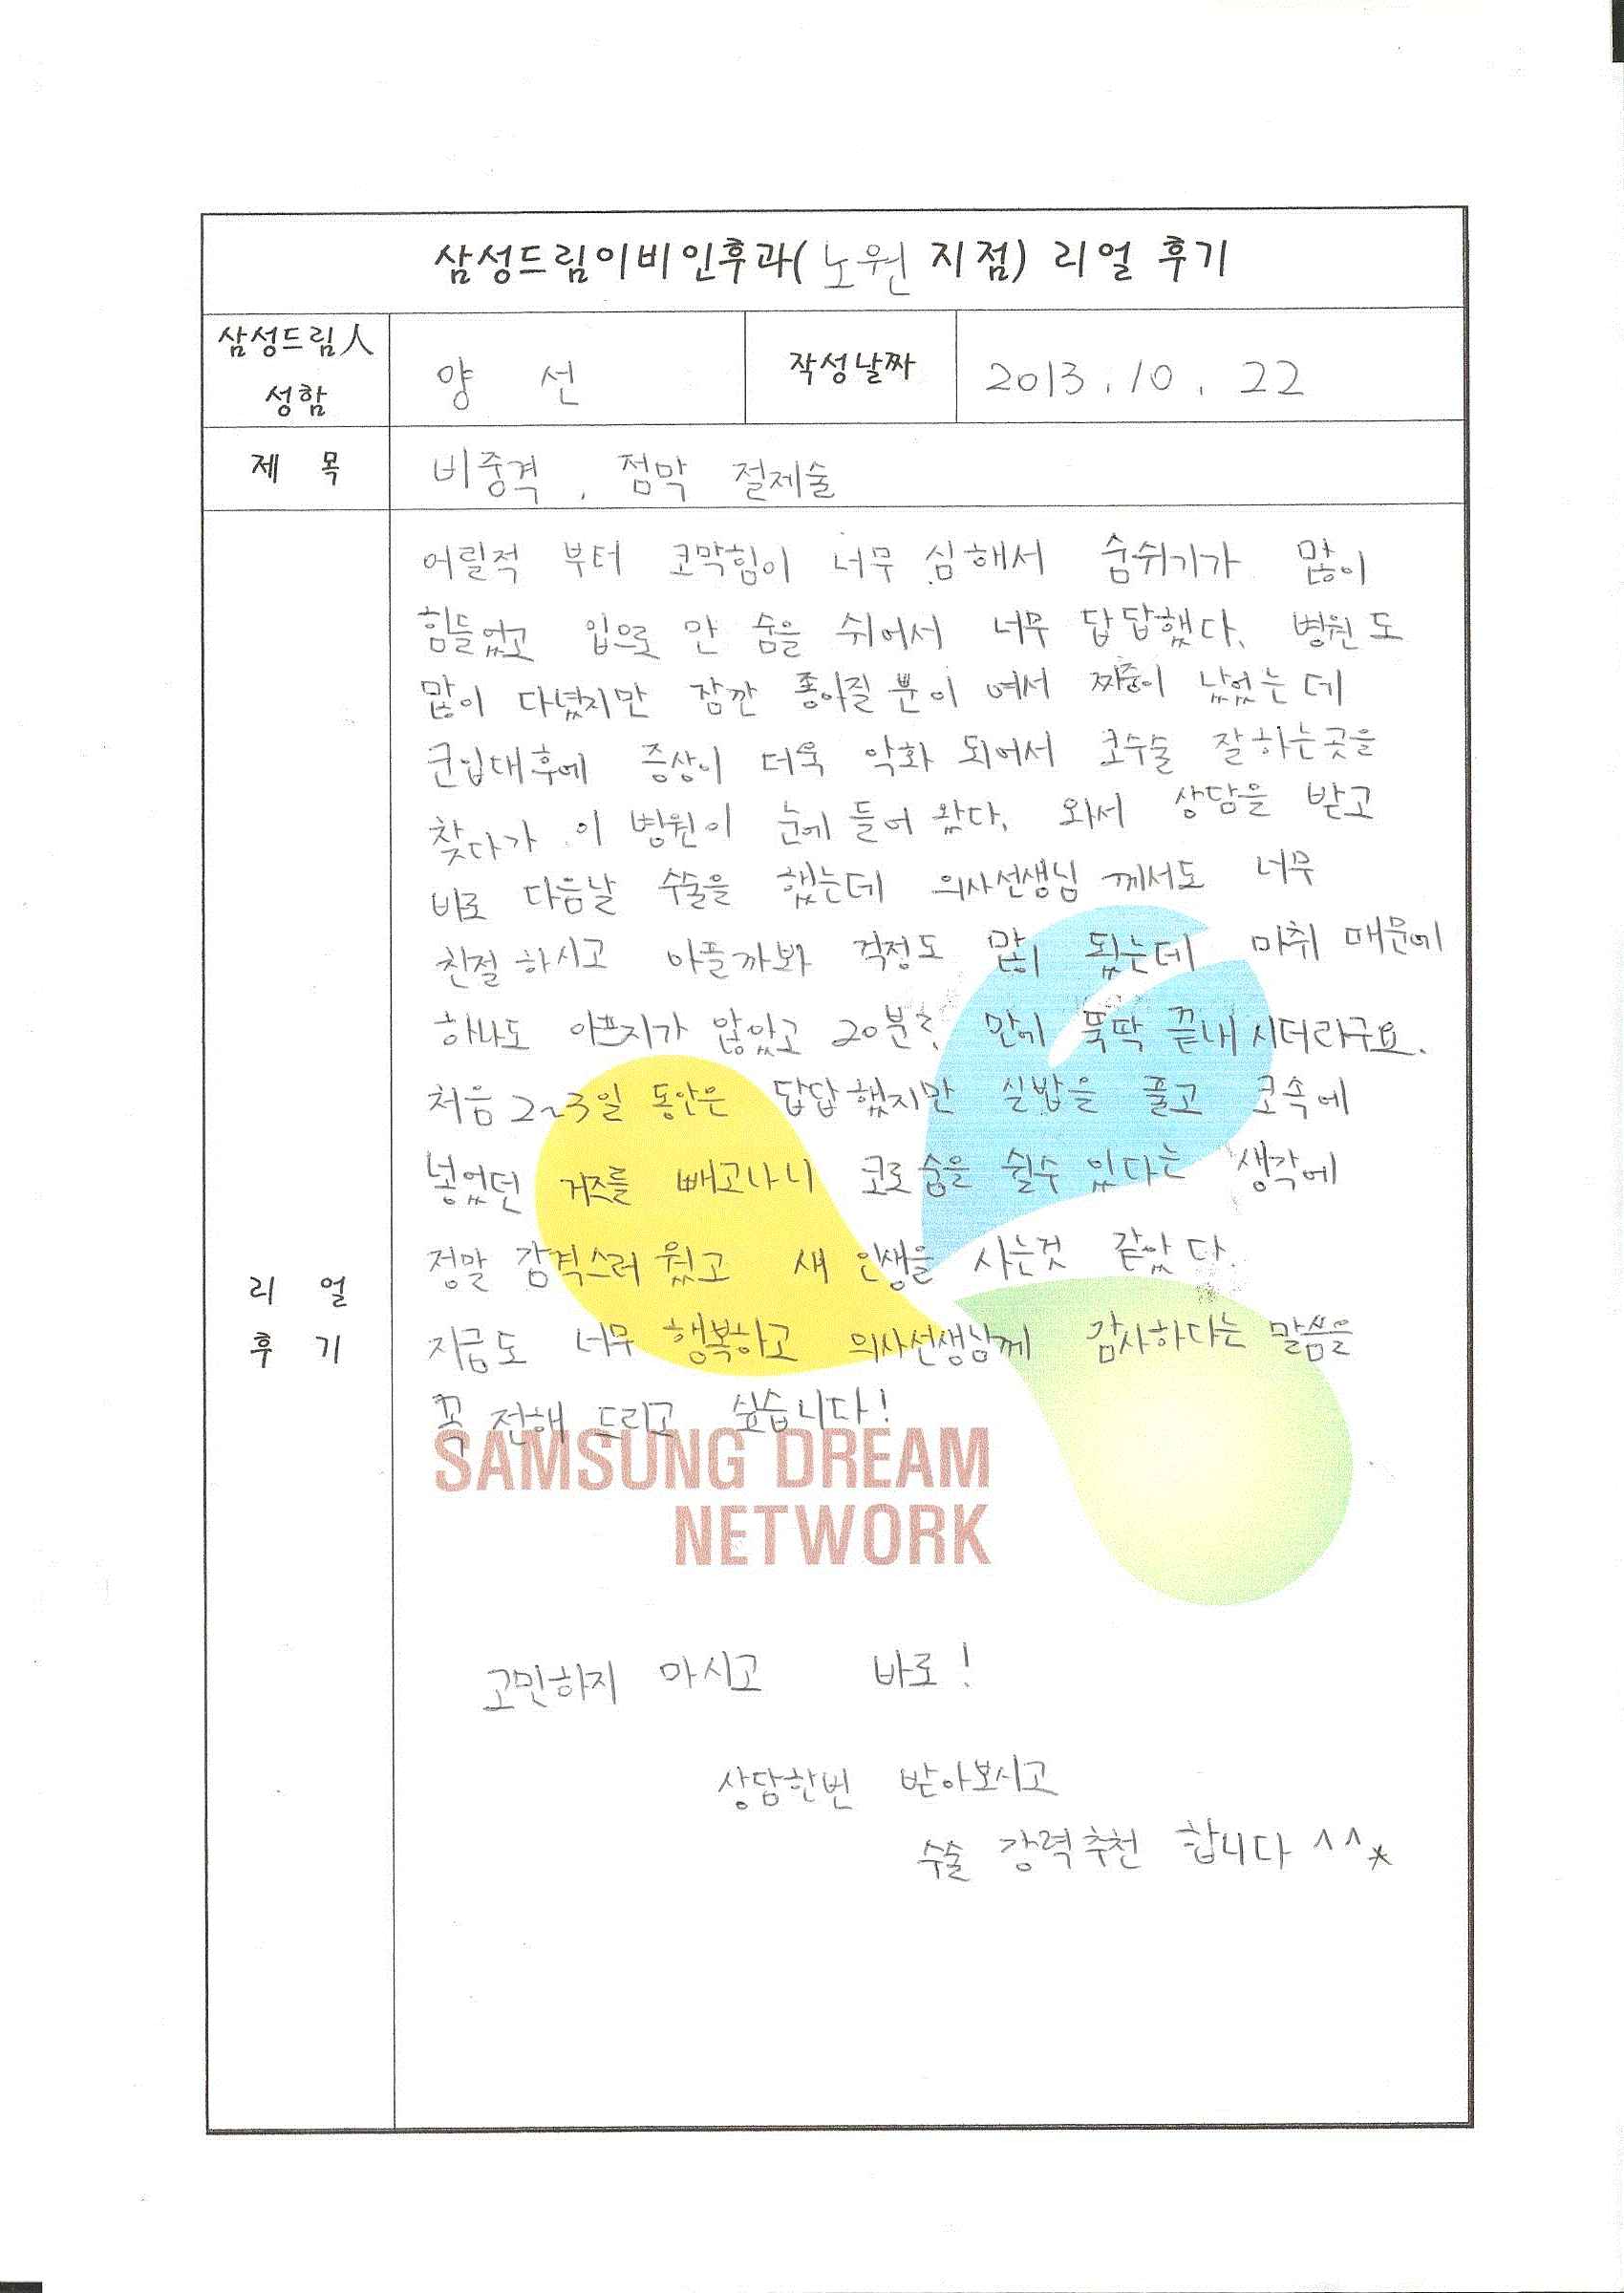 삼성드림이비인후과(노원 지점) 리얼 후기
삼성드림人 성함
양 선
작성날짜
2013. 10. 22
제 목
비중격, 점막 절제술
리 얼 후 기
어릴적 부터 코막힘이 너무 심해서 숨쉬기가 많이
힘들었고 입으로 만 숨을 쉬어서 너무 답답했다. 병원도
많이 다녔지만 잠깐 좋아질뿐이 여서 짜증이 났었는데
군입대후에 증상이 더욱 악화 되어서 코수술 잘하는곳을
찾다가 이 병원이 눈에 들어 왔다. 와서 상담을 받고
바로 다음날 수술을 했는데 의사선생님 께서도 너무
친절 하시고 아플까봐 걱정도 많이 됬는데 마취 때문에
하나도 아프지가 않았고 20분? 만에 뚝딱 끝내시더라구요.
처음 2~3일 동안은 답답했지만 실밥을 풀고 코속에
넣었던 거즈를 빼고나니 코로 숨을 쉴수 있다는 생각에
정말 감격스러 웠고 새 인생을 사는것 같았다.
지금도 너무 행복하고 의사선생님께 감사하다는 말씀을
꼭 전해 드리고 싶습니다!
SAMSUNG DREAM
NETWORK
고민하지 마시고 바로!
상담한번 받아보시고
수술 강력추천 합니다 ^^*